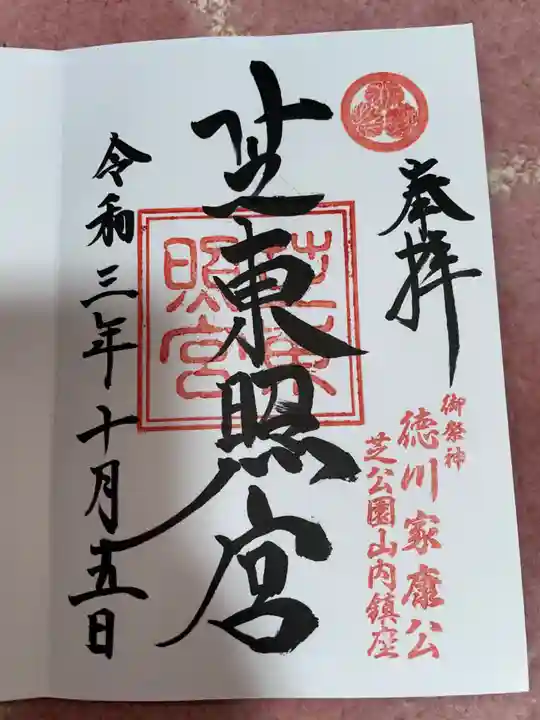 奉拝
御祭神
徳川家康公
芝公園山内鎮座
芝東照宮
芝東
照宮
令和三年十月五日